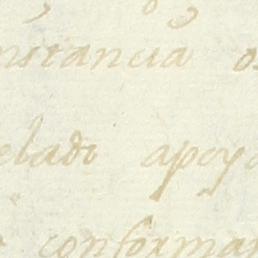 nstancia o
elado apoya
conforman